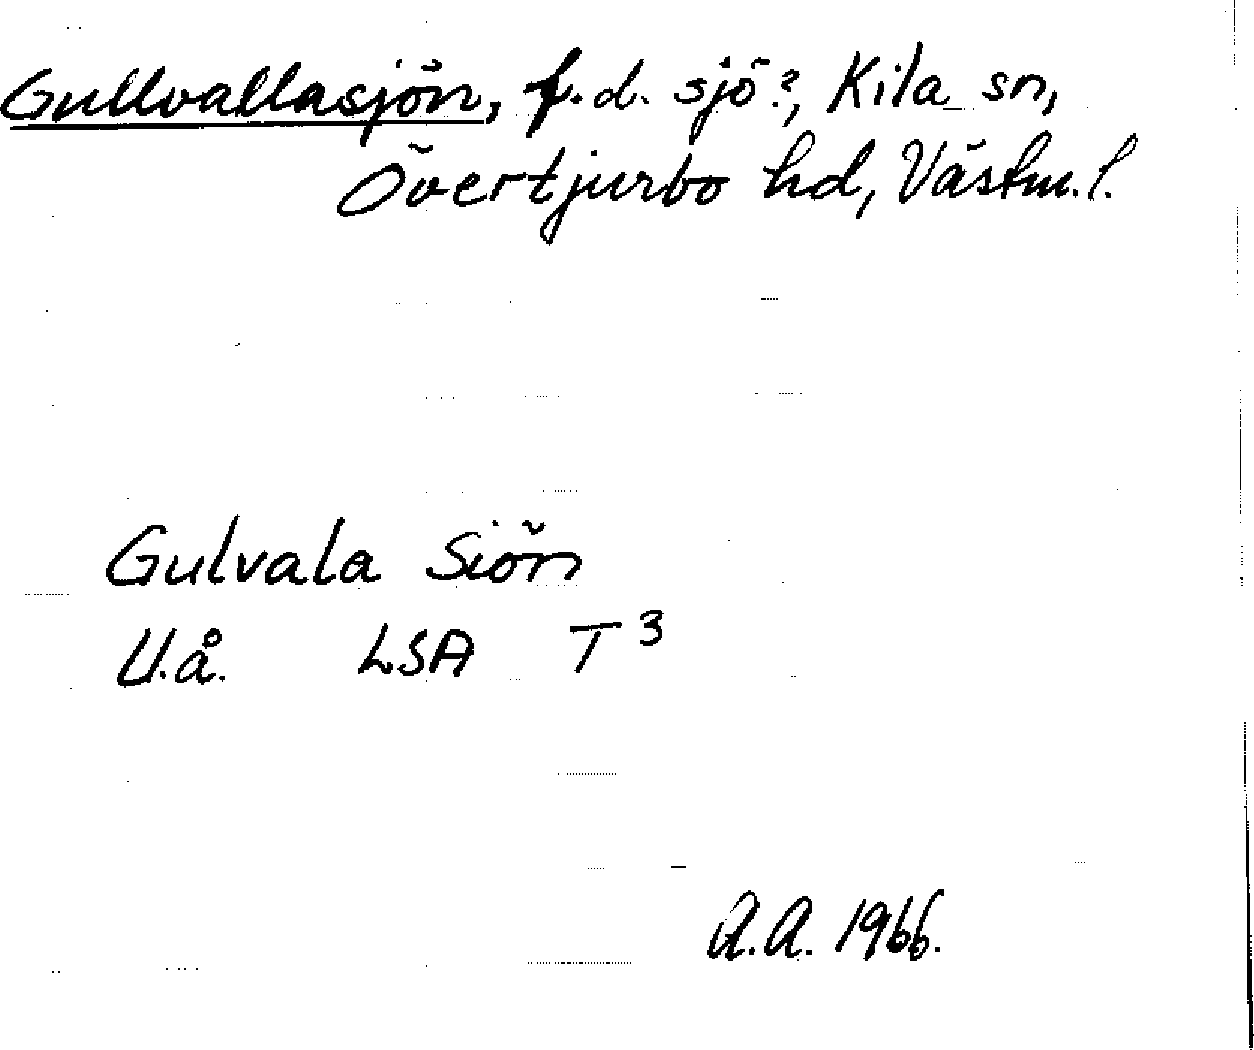 Gullvallasjön, f.d. sjö?, Kila sn,
Övertjurbo hd, Västm. l.
Gulvala Siön
U.å. LSA T³
A.A. 1966.